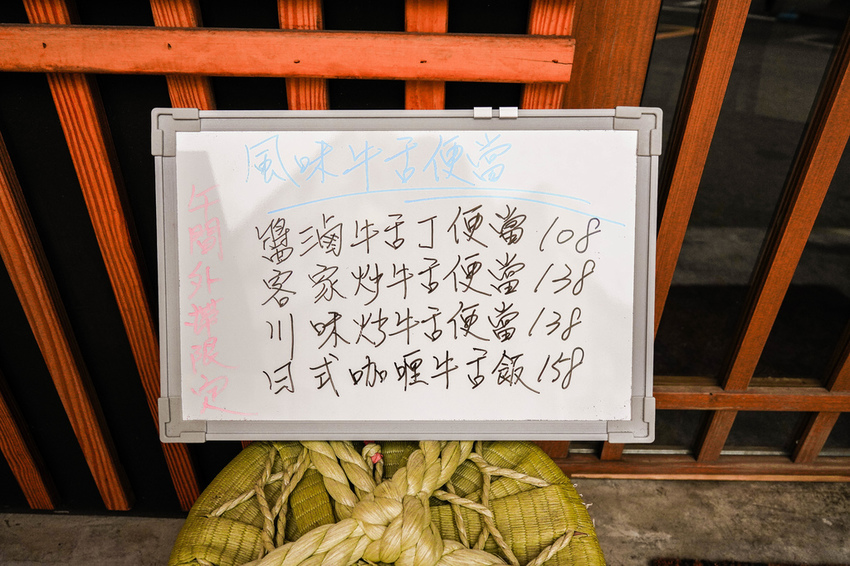 風味牛舌便當
醬滷牛舌丁便當 108
客家炒牛舌便當 138
川味炒牛舌便當 138
日式咖喱牛舌飯 158
午間外帶限定